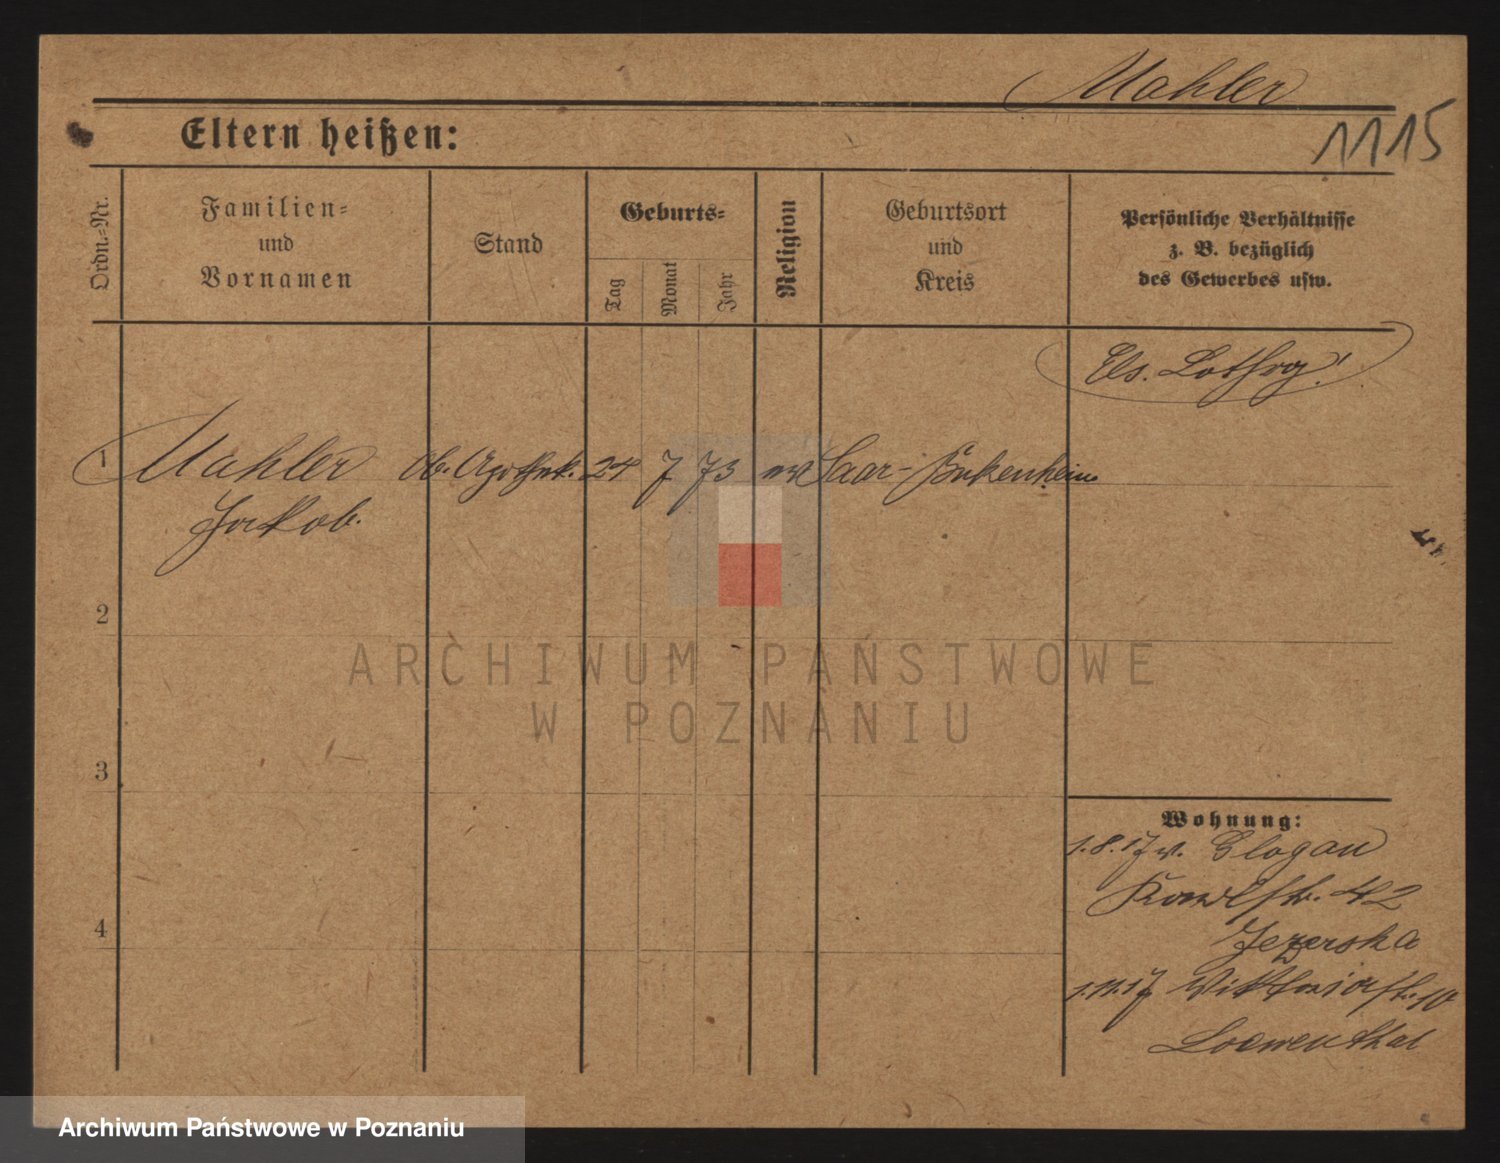 Mahler
1115
Eltern heißen:
Ordn.=Nr.
Familien=
und
Vornamen
Stand
Geburts=
Tag
Monat
Jahr
Religion
Geburtsort
und
Kreis
Persönliche Verhältnisse
z. B. bezüglich
des Gewerbes usw.
Els. Lothrg!
1 Mahler Ob. Apothek. 24 7 73 ev Saar-Buckenheim
Jakob.
2
ARCHIWUM PAŃSTWOWE
W POZNANIU
3
Wohnung:
1.8.17 v. Glogau
42
4
Jezerska
1.11.17 Viktoriastr. 10
Loewenthal
Archiwum Państwowe w Poznaniu